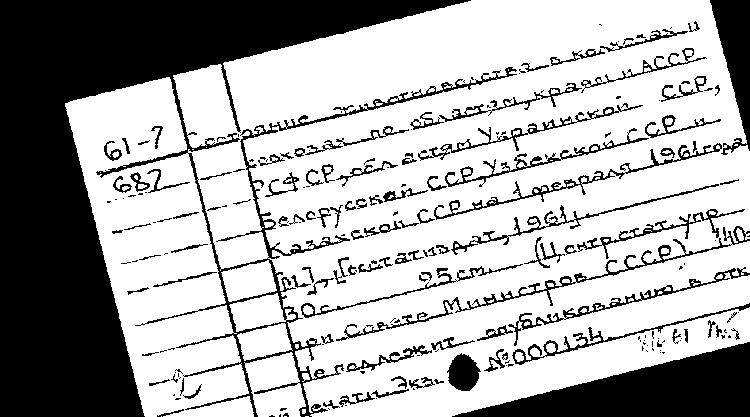 61-7
687
Состояние животноводства в колхозах и
совхозах по областям, краям и АССР
РСФСР, областям Украинской ССР,
Белорусской ССР, Узбекской ССР и
Казахской ССР на 1 февраля 1961 года
[М.], [Госстатиздат, 1961].
30с. 25см. (Центр. стат. упр.
при Совете Министров СССР). 140э
Не подлежит опубликованию в отк
ой печати. Экз. №000134.
2